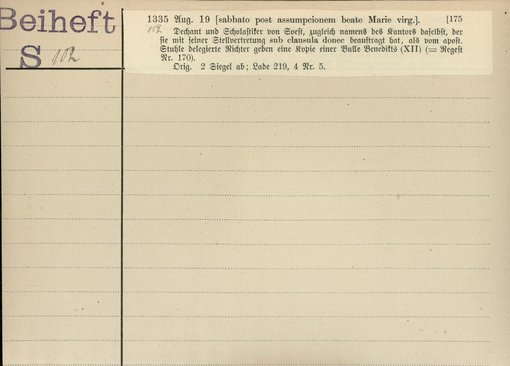 Beiheft
S 102
1335 Aug. 19 [sabbato post assumpcionem beate Marie virg.]. [175
102
Dechant und Scholastiker von Soest, zugleich namens des Kantors daselbst, der
sie mit seiner Stellvertretung sub clausula donec beauftragt hat, als vom apost.
Stuhle delegierte Richter geben eine Kopie einer Bulle Benedikts (XII) (= Regest
Nr. 170).
Orig. 2 Siegel ab; Lade 219, 4 Nr. 5.